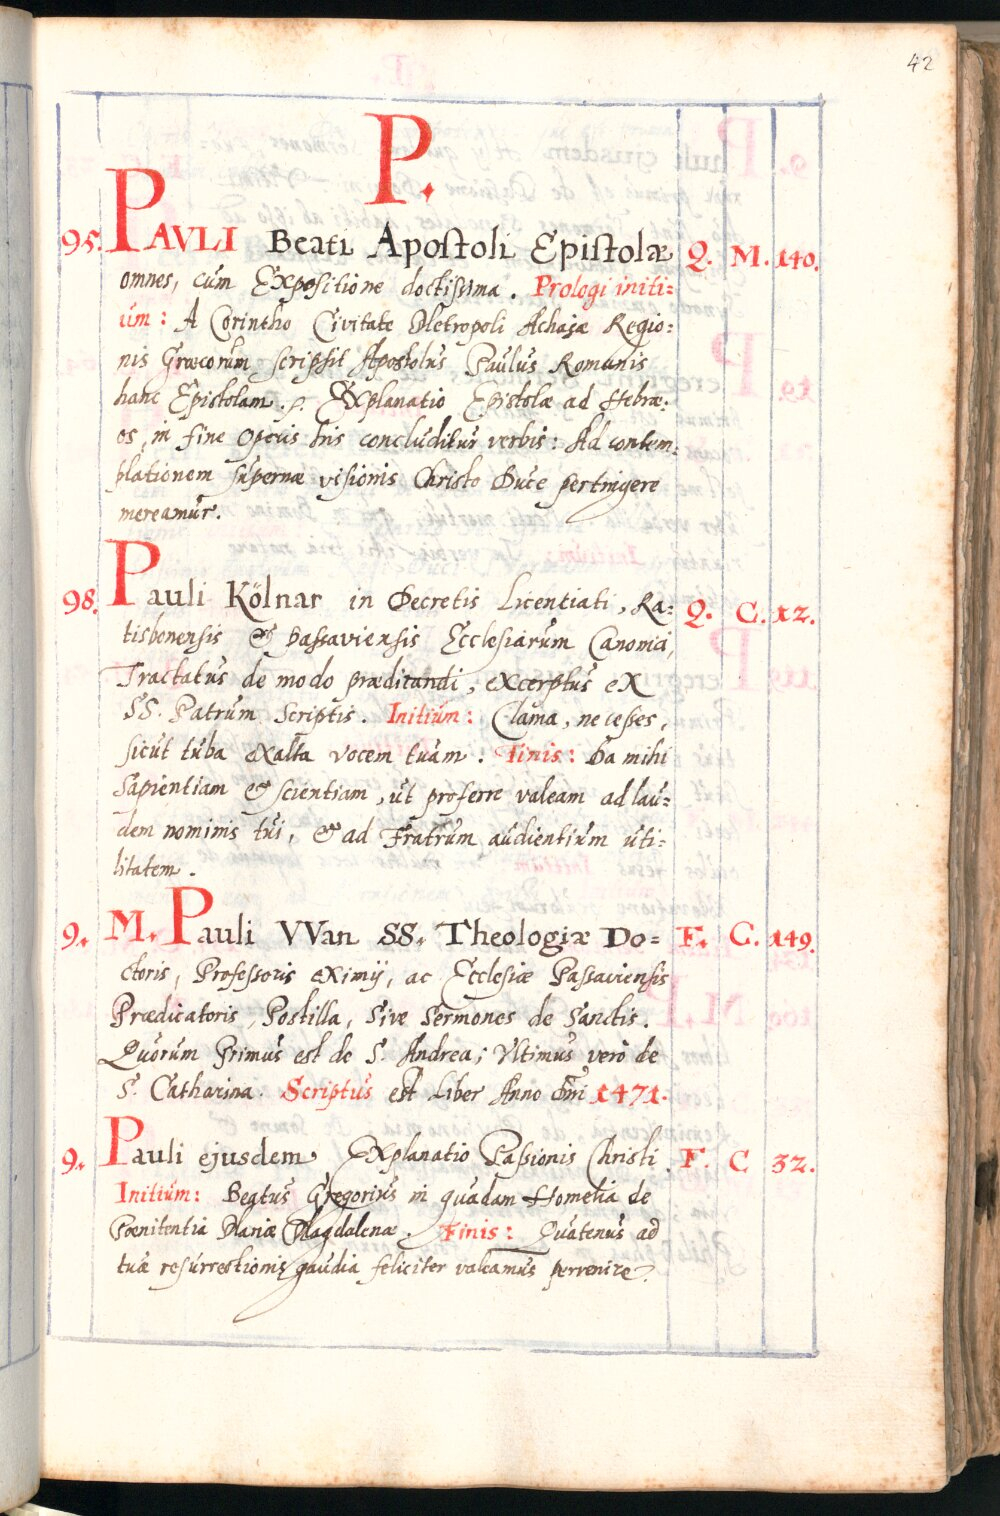 42
P.
95. PAVLI Beati Apostoli Epistolæ Q. M. 140.
omnes, cum Expositione doctissima. Prologi initi=
um: A Corintho Civitate Metropoli Achajæ Regio=
nis Græcorum scripsit Apostolus Paulus Romanis
hanc Epistolam. Explanatio Epistolæ ad Hebræ=
os, in fine Operis his concluditur verbis: Ad contem=
plationem supernæ visionis Christo Duce pertingere
mereamur.
98. Pauli Kölnar in Decretis Licentiati, Ra= Q. C. 12.
tisbonensis & Passaviensis Ecclesiarum Canonici,
Tractatus de modo prædicandi, excerptus ex
SS. Patrum Scriptis. Initium: Clama, ne cesses,
sicut tuba exalta vocem tuam: Finis: Da mihi
Sapientiam & scientiam, ut proferre valeam ad lau=
dem nominis tui, & ad Fratrum audientium uti=
litatem.
9. M. Pauli VVan SS. Theologiæ Do= F. C. 149.
ctoris, Professoris eximij, ac Ecclesiæ Passaviensis
Prædicatoris, Postilla, sive Sermones de Sanctis.
Quorum Primus est de S. Andrea; Vltimus verò de
S. Catharina. Scriptus est Liber Anno Dni 1471.
9. Pauli ejusdem Explanatio Passionis Christi. F. C 32.
Initium: Beatus Gregorius in quadam Homelia de
Pœnitentia Mariæ Magdalenæ. Finis: Quatenus ad
tuæ resurrectionis gaudia feliciter valeamus pervenire.